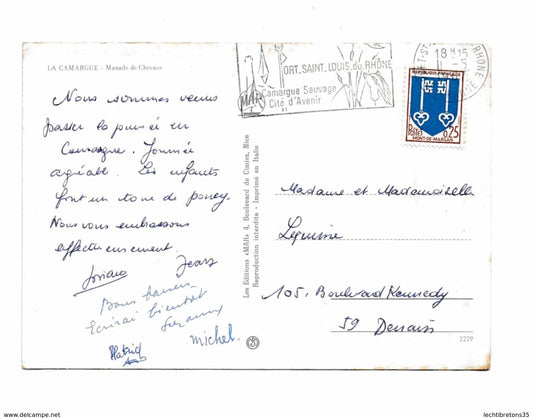 LA CAMARGUE - Manade de Chevaux
Nous sommes venus
passer la journée en
Camargue. Journée
agréable. Les enfants
font un tour de poney.
Nous vous embrassons
affectueusement.
Josiane Jean
Bons baisers
Ecrirai bientôt
Suzanne
Patrick
michel.
Les Editions «MAR» 4, Boulevard de Cimiez, Nice
Reproduction interdite - Imprimé en Italie
PORT. SAINT. LOUIS. du. RHÔNE
Camargue Sauvage
Cité d'Avenir
18 H 15
RHÔNE
REPUBLIQUE FRANÇAISE
POSTES 0,25
MONT-DE-MARSAN
Madame et Mademoiselle
Lequime
105, Boulevard Kennedy
59 Denain
2229
www.lechtibretons35